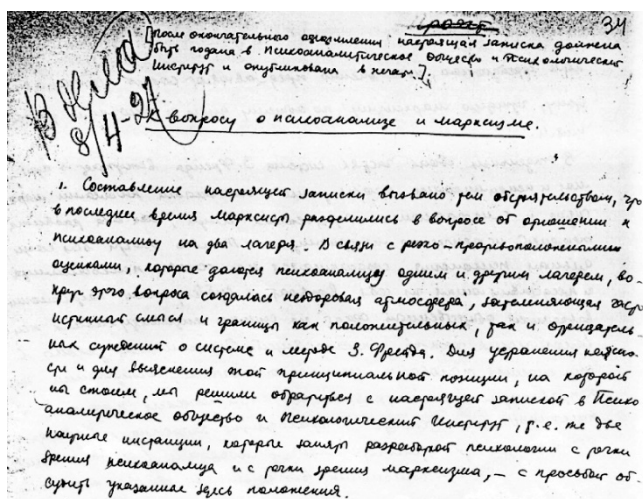 проект
34
[После окончательного одобрения настоящая записка должена
быть подана в Психоаналитическое Общество и Психологический
Институт и опубликована в печати.]
В дело
8/4-24
К вопросу о психоанализе и марксизме
1. Составление настоящей записки вызвано тем обстоятельством, что
в последнее время марксисты разделились в вопросе об отношении к
психоанализу на два лагеря. В связи с резко-противоположными
оценками, которые даются психоанализу одним и другим лагерем, во-
круг этого вопроса создалась нездоровая атмосфера, затемняющая
истинный смысл и границы как положительных, так и отрицатель-
ных суждений о системе и методе З. Фрейда. Для устранения неясно-
сти и для выяснения той принципиальной позиции, на которой
мы стоим, мы решили обратиться с настоящей запиской в Психо
аналитическое общество и Психологический Институт, т.е. те две
научные инстанции, которые заняты разработкой психологии с точки
зрения психоанализа и с точки зрения марксизма, – с просьбой об
судить указанные здесь положения.